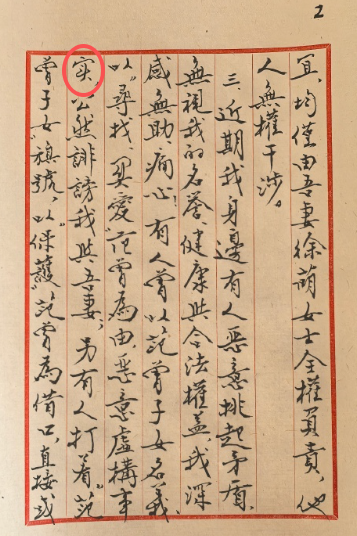 2
宜，均僅由吾妻徐萌女士全權負責，他
人無權干涉。
三、近期我身邊有人惡意挑起矛盾，
無視我的名譽、健康與合法權益，我深
感無助、痛心！有人曾以范曾子女名義，
以“尋找、關愛”范曾為由，惡意虛構事
实，公然誹謗我與吾妻；另有人打着“范
曾子女”旗號，以“保護”范曾為借口，直接或